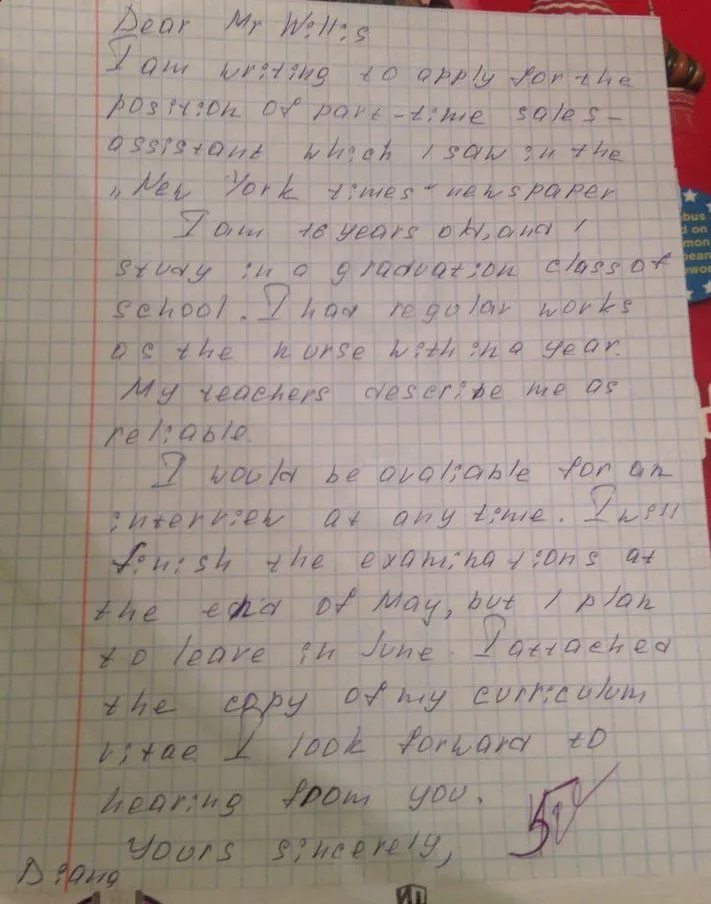 Dear Mr Willis
I am writing to apply for the
position of part-time sales-
assistant which I saw in the
„New York times" newspaper
I am 16 years old, and I
study in a graduation class of
school. I had regular works
as the nurse within a year.
My teachers describe me as
reliable.
I would be avaliable for an
interview at any time. I will
finish the examinations at
the end of May, but I plan
to leave in June. I attached
the copy of my curriculum
vitae I look forward to
hearing from you.
Yours sincerely,
Diana
5
bus
d on
mon